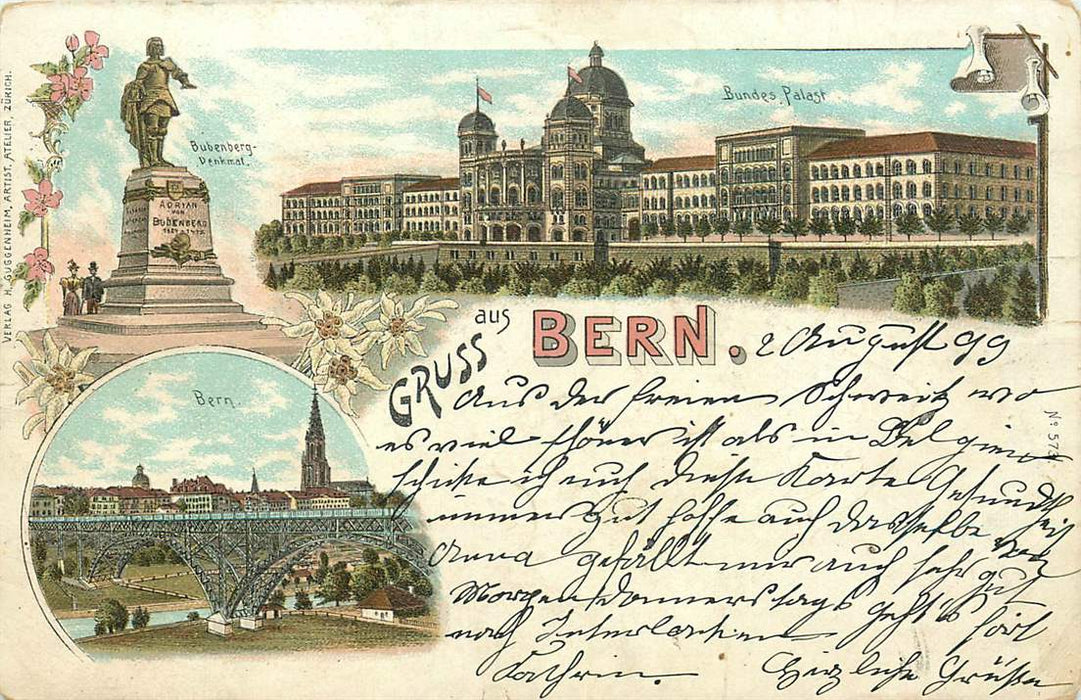 VERLAG H. GUGGENHEIM, ARTIST. ATELIER, ZÜRICH.
Bubenberg-
Denkmal.
ADRIAN
VON
BUBENBERG
Bundes Palast
Bern.
GRUSS aus BERN.
2 August 99
Aus der freien Schweitz wo
es viel schöner ist als in Belgien
schicke ich euch diese Karte Gesundheit
immer gut hoffe auch dasselbe von
Anna gefällt mir auch sehr gut
Morgen donnerstags geht's fort
nach Interlaken
Herzliche Grüsse
Kathrin.
No 57